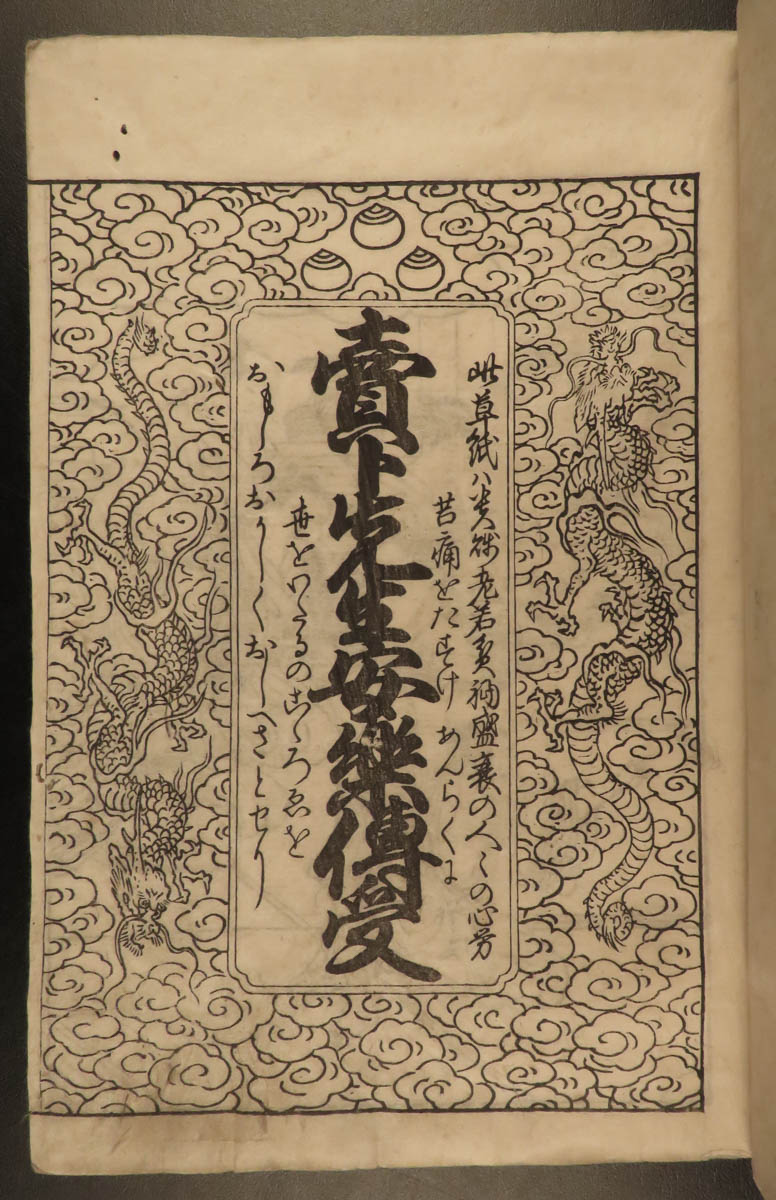 此草紙ハ貴賤老若貧福盛衰の人〻の心労
苦痛をたすけ あんらくに
賣卜先生安樂傳受
世をわたるのこゝろゑを
おもしろおかしくおしへさとせり